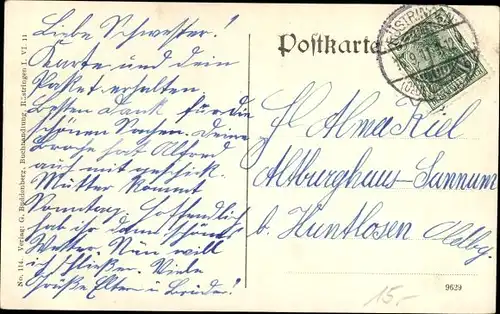 Postkarte
RÜSTRINGEN
Liebe Schwester!
Karte und dein
Paket erhalten
besten Dank für die
schönen Sachen. Deine
hast Alfred
auch mit geschickt.
Mutter kommt
Sonntag. Hoffendlich
hab ihr dann schönes
Wetter. Nun will
ich schließen. Viele
Grüße Elter u Brüder!
Frl Alma Kiel
Altburghaus-Sannum
b. Huntlosen
Oldbg.
No. 114. Verlag: G. Buddenberg, Buchhandlung, Rüstringen I. VI. 11
9629
15,-